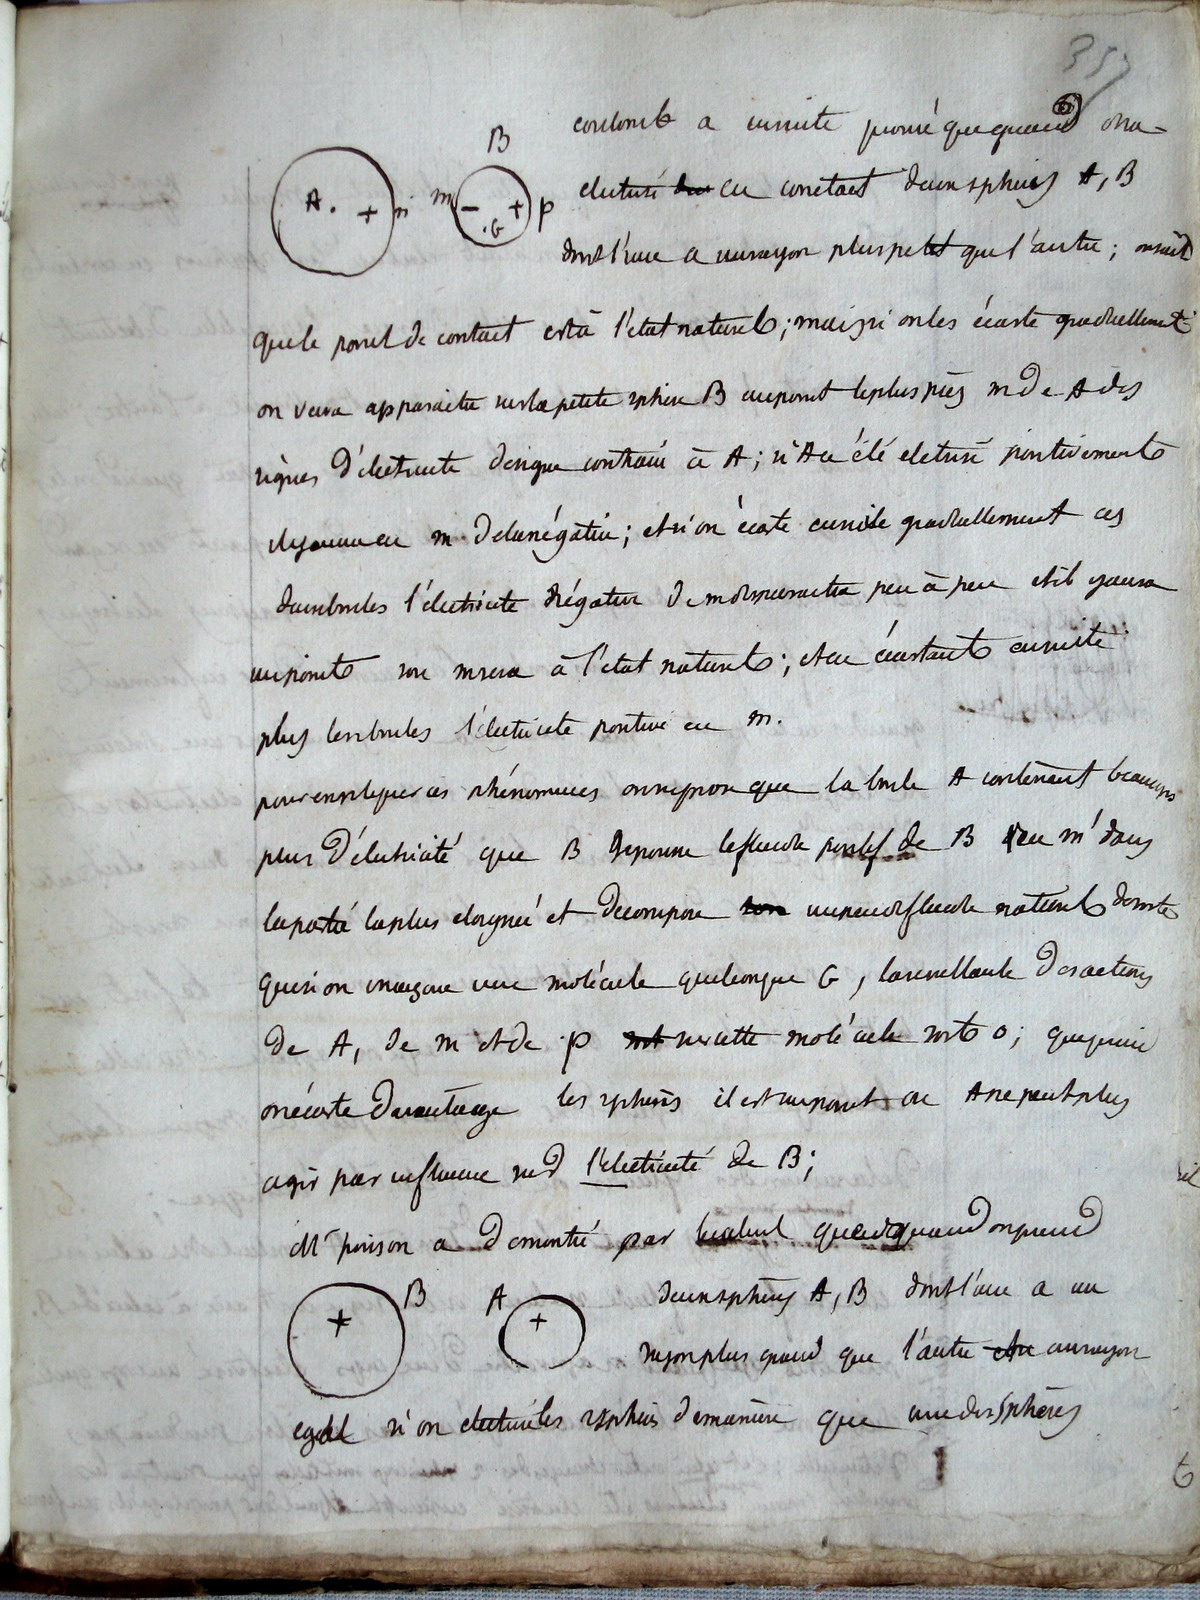 357
coulomb a ensuite prouvé que quand on a
B
A. + n m - + p
.G
electrisé en contact deux sphères A, B
dont l'une a un rayon plus petit que l'autre ; on sait
que le point de contact est à l'état naturel ; mais si on les écarte graduellement
on verra apparaitre sur la petite sphère B au point le plus près m de A des
signes d'électricité de signe contraire à A ; si A a été eletrisé positivement
il y aura en m de la négative ; et si on écarte ensuite graduellement ces
deux boules l'électricité négative de m disparaitra peu à peu et il y aura
un point où m sera à l'état naturel ; et en écartant ensuite
plus les boules l'électricité positive en m.
pour expliquer ces phénomenes on suppose que la boule A contenant beaucoup
plus d'électricité que B repousse le fluide positif de B en m' dans
la partie la plus eloignée et decompose un peu de fluide naturel de sorte
que si on imagine une molécule quelconque G, la resultante des actions
de A, de m et de p sur cette molécule soit 0 ; que puis
on écarte davantage les sphères il est un point où A ne peut plus
agir par influence sur l'electricité de B ;
Mr poisson a demontré par le calcul que quand on prend
B A deux sphères A, B dont l'une a un
+ +
rayon plus grand que l'autre ou un rayon
egal si on electrise les sphères de manière que une des sphères